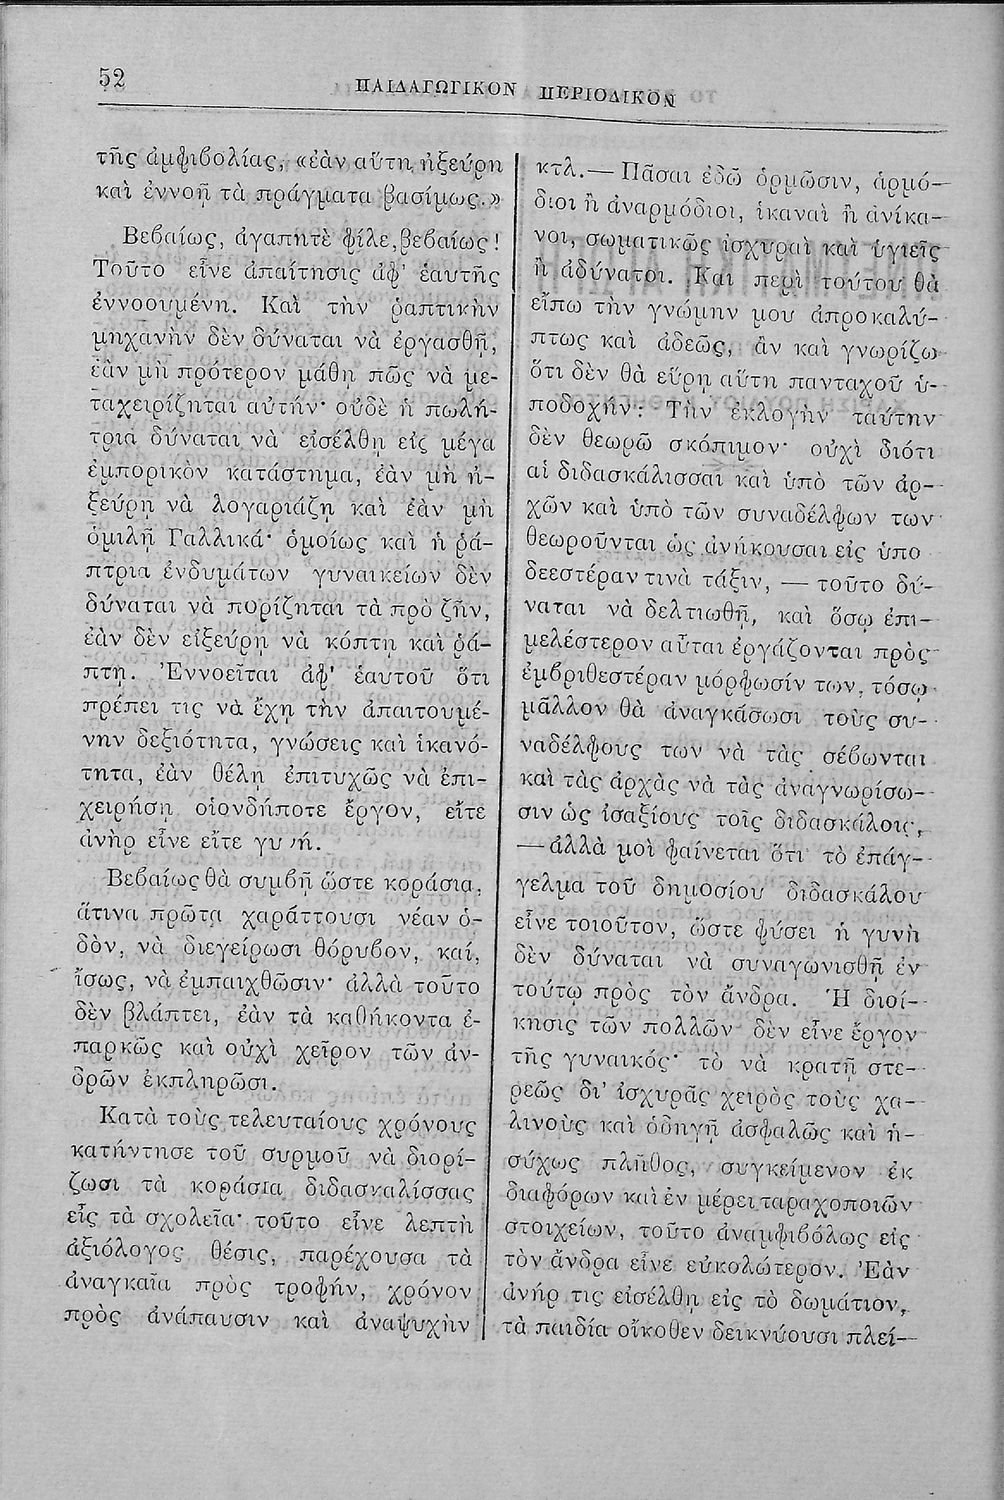 52
ΠΑΙΔΑΓΩΓΙΚΟΝ ΠΕΡΙΟΔΙΚΟΝ
τῆς ἀμφιβολίας, «ἐὰν αὕτη ἠξεύρη
καὶ ἐννοῇ τὰ πράγματα βασίμως.»
Βεβαίως, ἀγαπητὲ φίλε, βεβαίως!
Τοῦτο εἶνε ἀπαίτησις ἀφ' ἑαυτῆς
ἐννοουμένη. Καὶ τὴν ῥαπτικὴν
μηχανὴν δὲν δύναται νὰ ἐργασθῇ,
ἐὰν μὴ πρότερον μάθῃ πῶς νὰ με-
ταχειρίζηται αὐτήν· οὐδὲ ἡ πωλή-
τρια δύναται νὰ εἰσέλθῃ εἰς μέγα
ἐμπορικὸν κατάστημα, ἐὰν μὴ ἠ-
ξεύρῃ νὰ λογαριάζῃ καὶ ἐὰν μὴ
ὁμιλῇ Γαλλικά· ὁμοίως καὶ ἡ ῥά-
πτρια ἐνδυμάτων γυναικείων δὲν
δύναται νὰ πορίζηται τὰ πρὸ ζῆν,
ἐὰν δὲν εἰξεύρῃ νὰ κόπτῃ καὶ ῥά-
πτῃ. Ἐννοεῖται ἀφ' ἑαυτοῦ ὅτι
πρέπει τις νὰ ἔχῃ τὴν ἀπαιτουμέ-
νην δεξιότητα, γνώσεις καὶ ἱκανό-
τητα, ἐὰν θέλῃ ἐπιτυχῶς νὰ ἐπι-
χειρήσῃ οἱονδήποτε ἔργον, εἴτε
ἀνὴρ εἶνε εἴτε γυνή.
Βεβαίως θὰ συμβῇ ὥστε κοράσια,
ἅτινα πρῶτα χαράττουσι νέαν ὁ-
δὸν, νὰ διεγείρωσι θόρυβον, καί,
ἴσως, νὰ ἐμπαιχθῶσιν· ἀλλὰ τοῦτο
δὲν βλάπτει, ἐὰν τὰ καθήκοντα ἐ-
παρκῶς καὶ οὐχὶ χεῖρον τῶν ἀν-
δρῶν ἐκπληρῶσι.
Κατὰ τοὺς τελευταίους χρόνους
κατήντησε τοῦ συρμοῦ νὰ διορί-
ζωσι τὰ κοράσια διδασκαλίσσας
εἰς τὰ σχολεῖα· τοῦτο εἶνε λεπτὴ
ἀξιόλογος θέσις, παρέχουσα τὰ
ἀναγκαῖα πρὸς τροφήν, χρόνον
πρὸς ἀνάπαυσιν καὶ ἀναψυχὴν
κτλ.— Πᾶσαι ἐδῶ ὁρμῶσιν, ἁρμό-
διοι ἢ ἀναρμόδιοι, ἱκαναὶ ἢ ἀνίκα-
νοι, σωματικῶς ἰσχυραὶ καὶ ὑγιεῖς
ἢ ἀδύνατοι. Καὶ περὶ τούτου θὰ
εἴπω τὴν γνώμην μου ἀπροκαλύ-
πτως καὶ ἀδεῶς, ἂν καὶ γνωρίζω
ὅτι δὲν θὰ εὕρῃ αὕτη πανταχοῦ ὑ-
ποδοχήν: Τὴν ἐκλογὴν ταύτην
δὲν θεωρῶ σκόπιμον· οὐχὶ διότι
αἱ διδασκάλισσαι καὶ ὑπὸ τῶν ἀρ-
χῶν καὶ ὑπὸ τῶν συναδέλφων των
θεωροῦνται ὡς ἀνήκουσαι εἰς ὑπο
δεεστέραν τινὰ τάξιν, — τοῦτο δύ-
ναται νὰ δελτιωθῇ, καὶ ὅσῳ ἐπι-
μελέστερον αὗται ἐργάζονται πρὸς
ἐμβριθεστέραν μόρφωσίν των, τόσῳ
μᾶλλον θὰ ἀναγκάσωσι τοὺς συ-
ναδέλφους των νὰ τὰς σέβωνται
καὶ τὰς ἀρχὰς νὰ τὰς ἀναγνωρίσω-
σιν ὡς ἰσαξίους τοῖς διδασκάλοις,
—ἀλλὰ μοὶ φαίνεται ὅτι τὸ ἐπάγ-
γελμα τοῦ δημοσίου διδασκάλου
εἶνε τοιοῦτον, ὥστε φύσει ἡ γυνὴ
δὲν δύναται νὰ συναγωνισθῇ ἐν
τούτῳ πρὸς τὸν ἄνδρα. Ἡ διοί-
κησις τῶν πολλῶν δὲν εἶνε ἔργον
τῆς γυναικός· τὸ νὰ κρατῇ στε-
ρεῶς δι' ἰσχυρᾶς χειρὸς τοὺς χα-
λινοὺς καὶ ὁδηγῇ ἀσφαλῶς καὶ ἡ-
σύχως πλῆθος, συγκείμενον ἐκ
διαφόρων καὶ ἐν μέρει ταραχοποιῶν
στοιχείων, τοῦτο ἀναμφιβόλως εἰς
τὸν ἄνδρα εἶνε εὐκολώτερον. Ἐὰν
ἀνήρ τις εἰσέλθῃ εἰς τὸ δωμάτιον,
τὰ παιδία οἴκοθεν δεικνύουσι πλεί-